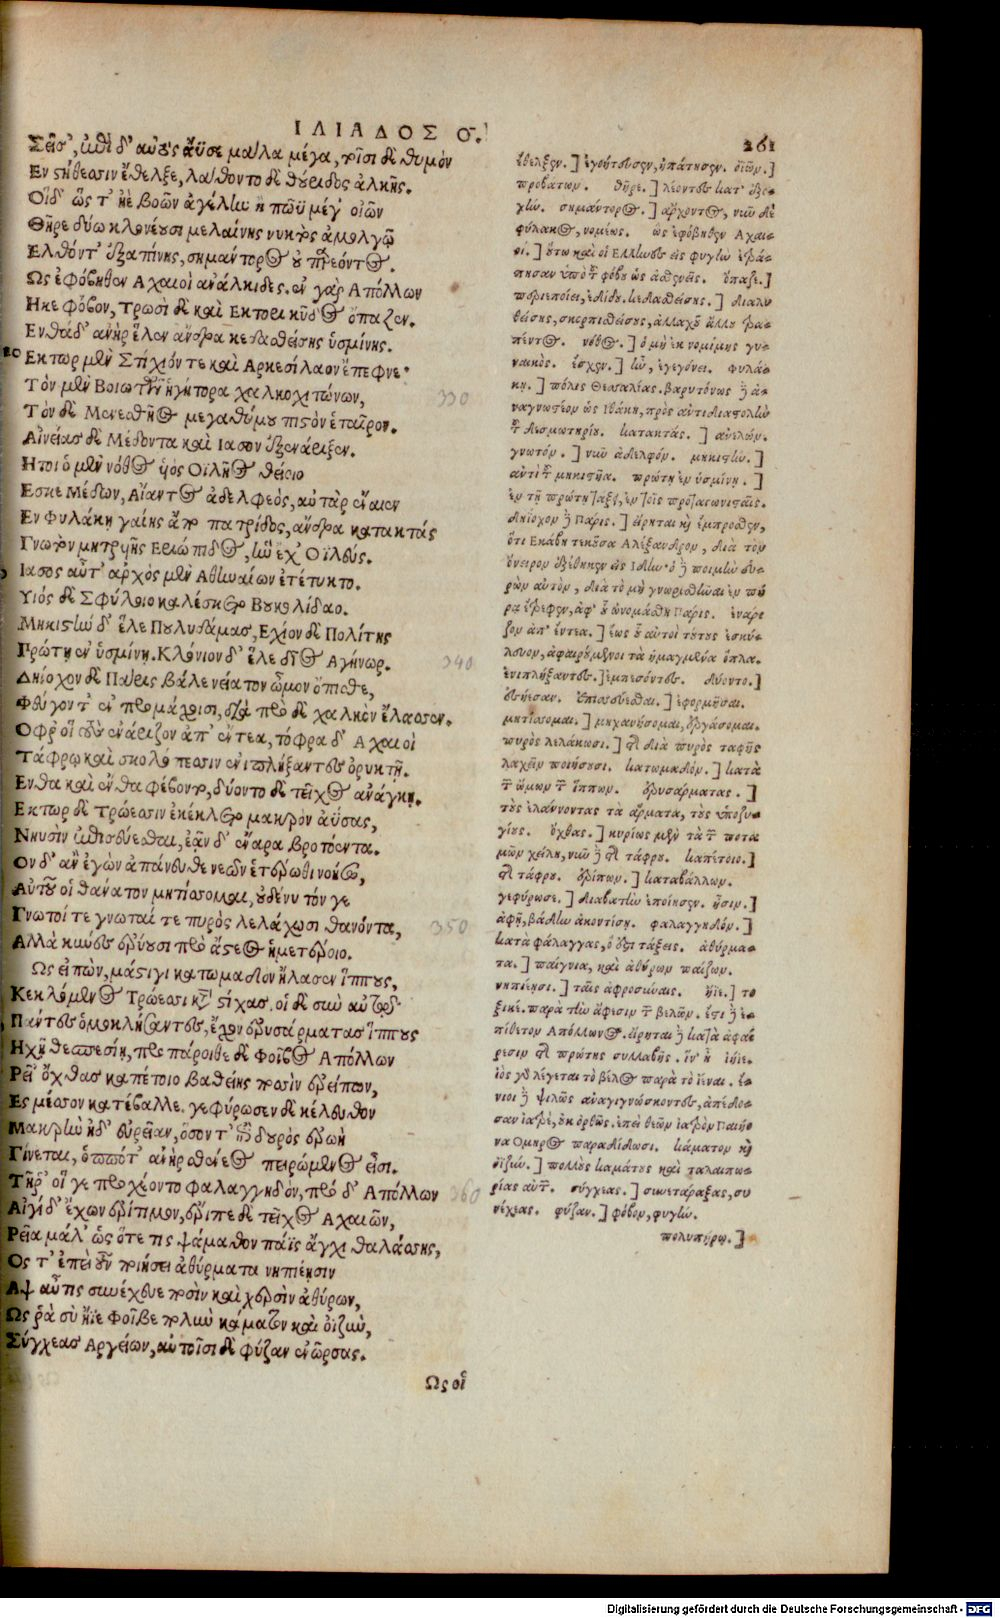 ΙΛΙΑΔΟΣ Ο.
261
Σεῖσ', ἐπὶ δ' αὐτὸς ἄϋσε μάλα μέγα, τοῖσι δὲ θυμὸν
Εν στήθεσσιν ἔθελξε, λάθοντο δὲ θούριδος ἀλκῆς.
Οἱ δ' ὥς τ' ἠὲ βοῶν ἀγέλην ἢ πῶϋ μέγ' οἰῶν
Θῆρε δύω κλονέουσι μελαίνης νυκτὸς ἀμολγῷ
Ελθόντ' ἐξαπίνης, σημάντορος οὐ παρεόντος.
Ως ἐφόβηθεν Αχαιοὶ ἀνάλκιδες. ἐν γὰρ Απόλλων
Ηκε φόβον, Τρωσὶ δὲ καὶ Εκτορι κῦδος ὄπαζεν.
Ενθάδ' ἀνὴρ ἕλεν ἄνδρα κεδασθείσης ὑσμίνης.
Εκτωρ μὲν Στιχίόν τε καὶ Αρκεσίλαον ἔπεφνε·
Τὸν μὲν Βοιωτῶν ἡγήτορα χαλκοχιτώνων,
330
Τὸν δὲ Μενεσθῆος μεγαθύμου πιστὸν ἑταῖρον.
Αἰνείας δὲ Μέδοντα καὶ Ιασον ἐξενάριξεν.
Ητοι ὁ μὲν νόθος ὑὸς Οϊλῆος θείοιο
Εσκε Μέδων, Αἴαντος ἀδελφεὸς, αὐτὰρ ἔναιεν
Εν Φυλάκῃ γαίης ἄπο πατρίδος, ἄνδρα κατακτάς
Γνωτὸν μητρυιῆς Εριώπιδος, ἣν ἔχ' Οϊλεύς.
Ιασος αὖτ' ἀρχὸς μὲν Αθηναίων ἐτέτυκτο.
Υἱὸς δὲ Σφήλοιο καλέσκετο Βουκολίδαο.
Μηκιστῆ δ' ἕλε Πουλυδάμας, Εχίον δὲ Πολίτης
Πρώτῃ ἐν ὑσμίνῃ. Κλόνιον δ' ἕλε δῖος Αγήνωρ.
340
Δηίοχον δὲ Πάρις βάλε νείατον ὦμον ὄπισθε,
Φεύγοντ' ἐν προμάχοισι, διὰ πρὸ δὲ χαλκὸν ἔλασσεν.
Οφρ' οἱ τοὺς ἐνάριζον ἀπ' ἔντεα, τόφρα δ' Αχαιοὶ
Τάφρῳ καὶ σκολόπεσσιν ἐνιπλήξαντες ὀρυκτῇ.
Ενθα καὶ ἔνθα φέβοντο, δύοντο δὲ τεῖχος ἀνάγκῃ.
Εκτωρ δὲ Τρώεσσιν ἐκέκλετο μακρὸν ἀύσας,
Νηυσὶν ἐπισσεύεσθαι, ἐᾷν δ' ἔναρα βροτόεντα.
Ον δ' ἂν ἐγὼν ἀπάνευθε νεῶν ἑτέρωθι νοήσω,
Αὐτοῦ οἱ θάνατον μητίσομαι, οὐδένυ τόν γε
Γνωτοί τε γνωταί τε πυρὸς λελάχωσι θανόντα,
350
Αλλὰ κύνες ἐρύουσι πρὸ ἄστεος ἡμετέροιο.
Ως εἰπὼν, μάστιγι κατωμαδὸν ἤλασεν ἵππους,
Κεκλόμενος Τρώεσσι κατὰ στίχας. οἱ δὲ σὺν αὐτῷ
Πάντες ὁμοκλήσαντες, ἔχον ἐρυσάρματας ἵππους
Ηχῇ θεσπεσίῃ, προπάροιθε δὲ Φοῖβος Απόλλων
Ρεῖ' ὄχθας καπέτοιο βαθείης ποσὶν ἐρείπων,
Ες μέσσον κατέβαλλε. γεφύρωσεν δὲ κέλευθον
Μακρὴν ἠδ' εὐρεῖαν, ὅσον τ' ἐπὶ δουρὸς ἐρωὴ
Γίνεται, ὁππότ' ἀνὴρ σθένεος πειρώμενος εἶσι.
Τῇ ῥ' οἵ γε προχέοντο φαλαγγηδὸν, πρὸ δ' Απόλλων
360
Αἰγίδ' ἔχων ἐρίτιμον, ἔρειπε δὲ τεῖχος Αχαιῶν,
Ρεῖα μάλ' ὡς ὅτε τις ψάμαθον πάϊς ἄγχι θαλάσσης,
Ος τ' ἐπεὶ οὖν ποιήσει ἀθύρματα νηπιέησιν
Αψ αὖτις συνέχευε ποσὶν καὶ χερσὶν ἀθύρων,
Ως ῥὰ σὺ ἤϊε Φοῖβε πολὺν κάματον καὶ ὀϊζὺν,
Σύγχεας Αργείων, αὐτοῖσι δὲ φύζαν ἐνῶρσας.
Ως οἱ
ἔθελξεν.] ἐγοήτευσεν, ἠπάτησεν. ὀϊῶν.]
προβάτων. θῆρε.] λέοντες κατ' ἐξο-
χήν. σημάντορος.] ἄρχοντος, νῦν δὲ
φύλακος, νομέως. ὡς ἐφόβηθεν Αχαι-
οί.] οὕτω καὶ οἱ Ελληνες εἰς φυγὴν ἐτρά-
πησαν ὑπὸ τοῦ φόβου ὡς ἀσθενεῖς. ὄπαζε.]
περιεποίει, ἐδίδου. κεδασθείσης.] διαλυ
θείσης, σκορπισθείσης, ἀλλαχοῦ ἄλλου τρα-
πέντος. νόθος.] ὁ μὴ ἐκ νομίμης γυ-
ναικός. ἔσκεν.] ἦν, ἐγεγόνει. φυλά-
κη.] πόλις Θεσσαλίας. βαρυτόνως δὲ ἀ-
ναγνωστέον ὡς Ιθάκη, πρὸς ἀντιδιαστολὴν
τοῦ δεσμωτηρίου. κατακτάς.] ἀνελών.
γνωτόν.] νῦν ἀδελφόν. μηκιστῆ.]
ἀντὶ τοῦ μηκιστῆα. πρώτῃ ἐν ὑσμίνῃ.]
ἐν τῇ πρώτῃ τάξει, ἐν τοῖς πρωταγωνισταῖς.
Δηίοχον δὲ Πάρις.] εἴρηται καὶ ἔμπροσθεν,
ὅτι Εκάβη τεκοῦσα Αλέξανδρον, διὰ τὸν
ὄνειρον ἐξέθηκεν εἰς Ιδην· ὁ δὲ ποιμὴν εὑ-
ρὼν αὐτὸν, διὰ τὸ μὴ γνωρισθῆναι ἐν πή
ρᾳ ἔτρεφεν, ἀφ' οὗ ὠνομάσθη Πάρις. ἐνάρι
ζον ἀπ' ἔντεα.] ἕως οὗ αὐτοὶ τούτους ἐσκύ-
λευον, ἀφαιρούμενοι τὰ ᾑμαγμένα ὅπλα.
ἐνιπλήξαντες.] ἐμπεσόντες. δύοντο.]
εἰσῄεσαν. ἐπισσεύεσθαι.] ἐφορμῆσαι.
μητίσομαι.] μηχανήσομαι, ἐργάσομαι.
πυρὸς λελάχωσι.] τῆς διὰ πυρὸς ταφῆς
λαχεῖν ποιήσουσι. κατωμαδόν.] κατὰ
τῶν ὤμων τῶν ἵππων. ἐρυσάρματας.]
τοὺς ἑλκύνοντας τὰ ἅρματα, τοὺς ὑποζυ-
γίους. ὄχθας.] κυρίως μὲν τὰ τῶν ποτα
μῶν χείλη, νῦν δὲ τῆς τάφρου. καπέτοιο.]
τῆς τάφρου. ἐρείπων.] καταβάλλων.
γεφύρωσε.] διαβατὴν ἐποίησεν. ᾗσιν.]
ἀφῇ, βάλῃ ἀκοντίσῃ. φαλαγγηδόν.]
κατὰ φάλαγγας, ὅ ἐστι τάξεις. ἀθύρμα-
τα.] παίγνια, καὶ ἀθύρων παίζων.
νηπιέησι.] ταῖς ἀφροσύναις. ἤϊε.] το
ξικέ. παρὰ τὴν ἄφεσιν τῶν βελῶν. ἔστι δὲ ἐ-
πίθετον Απόλλωνος. εἴρηται δὲ κατὰ ἀφαί
ρεσιν τῆς πρώτης συλλαβῆς. ἵν' ᾖ ἰήιε.
ἰὸς γὰρ λέγεται τὸ βέλος παρὰ τὸ ἰέναι. ἔ-
νιοι δὲ ψιλῶς ἀναγιγνώσκοντες, ἀπέδο-
σαν ἰατρὲ, οὐκ ὀρθῶς. ἐπεὶ θεῶν ἰατρὸν Παιήο
να Ομηρος παραδίδωσι. κάματον καὶ
ὀϊζύν.] πολλοὺς καμάτους καὶ ταλαιπω-
ρίας αὐτῶν. σύγχεας.] συνετάραξας, συ
νέχεας. φύζαν.] φόβον, φυγήν.
πολυπύρῳ.]
Digitalisierung gefördert durch die Deutsche Forschungsgemeinschaft - DFG